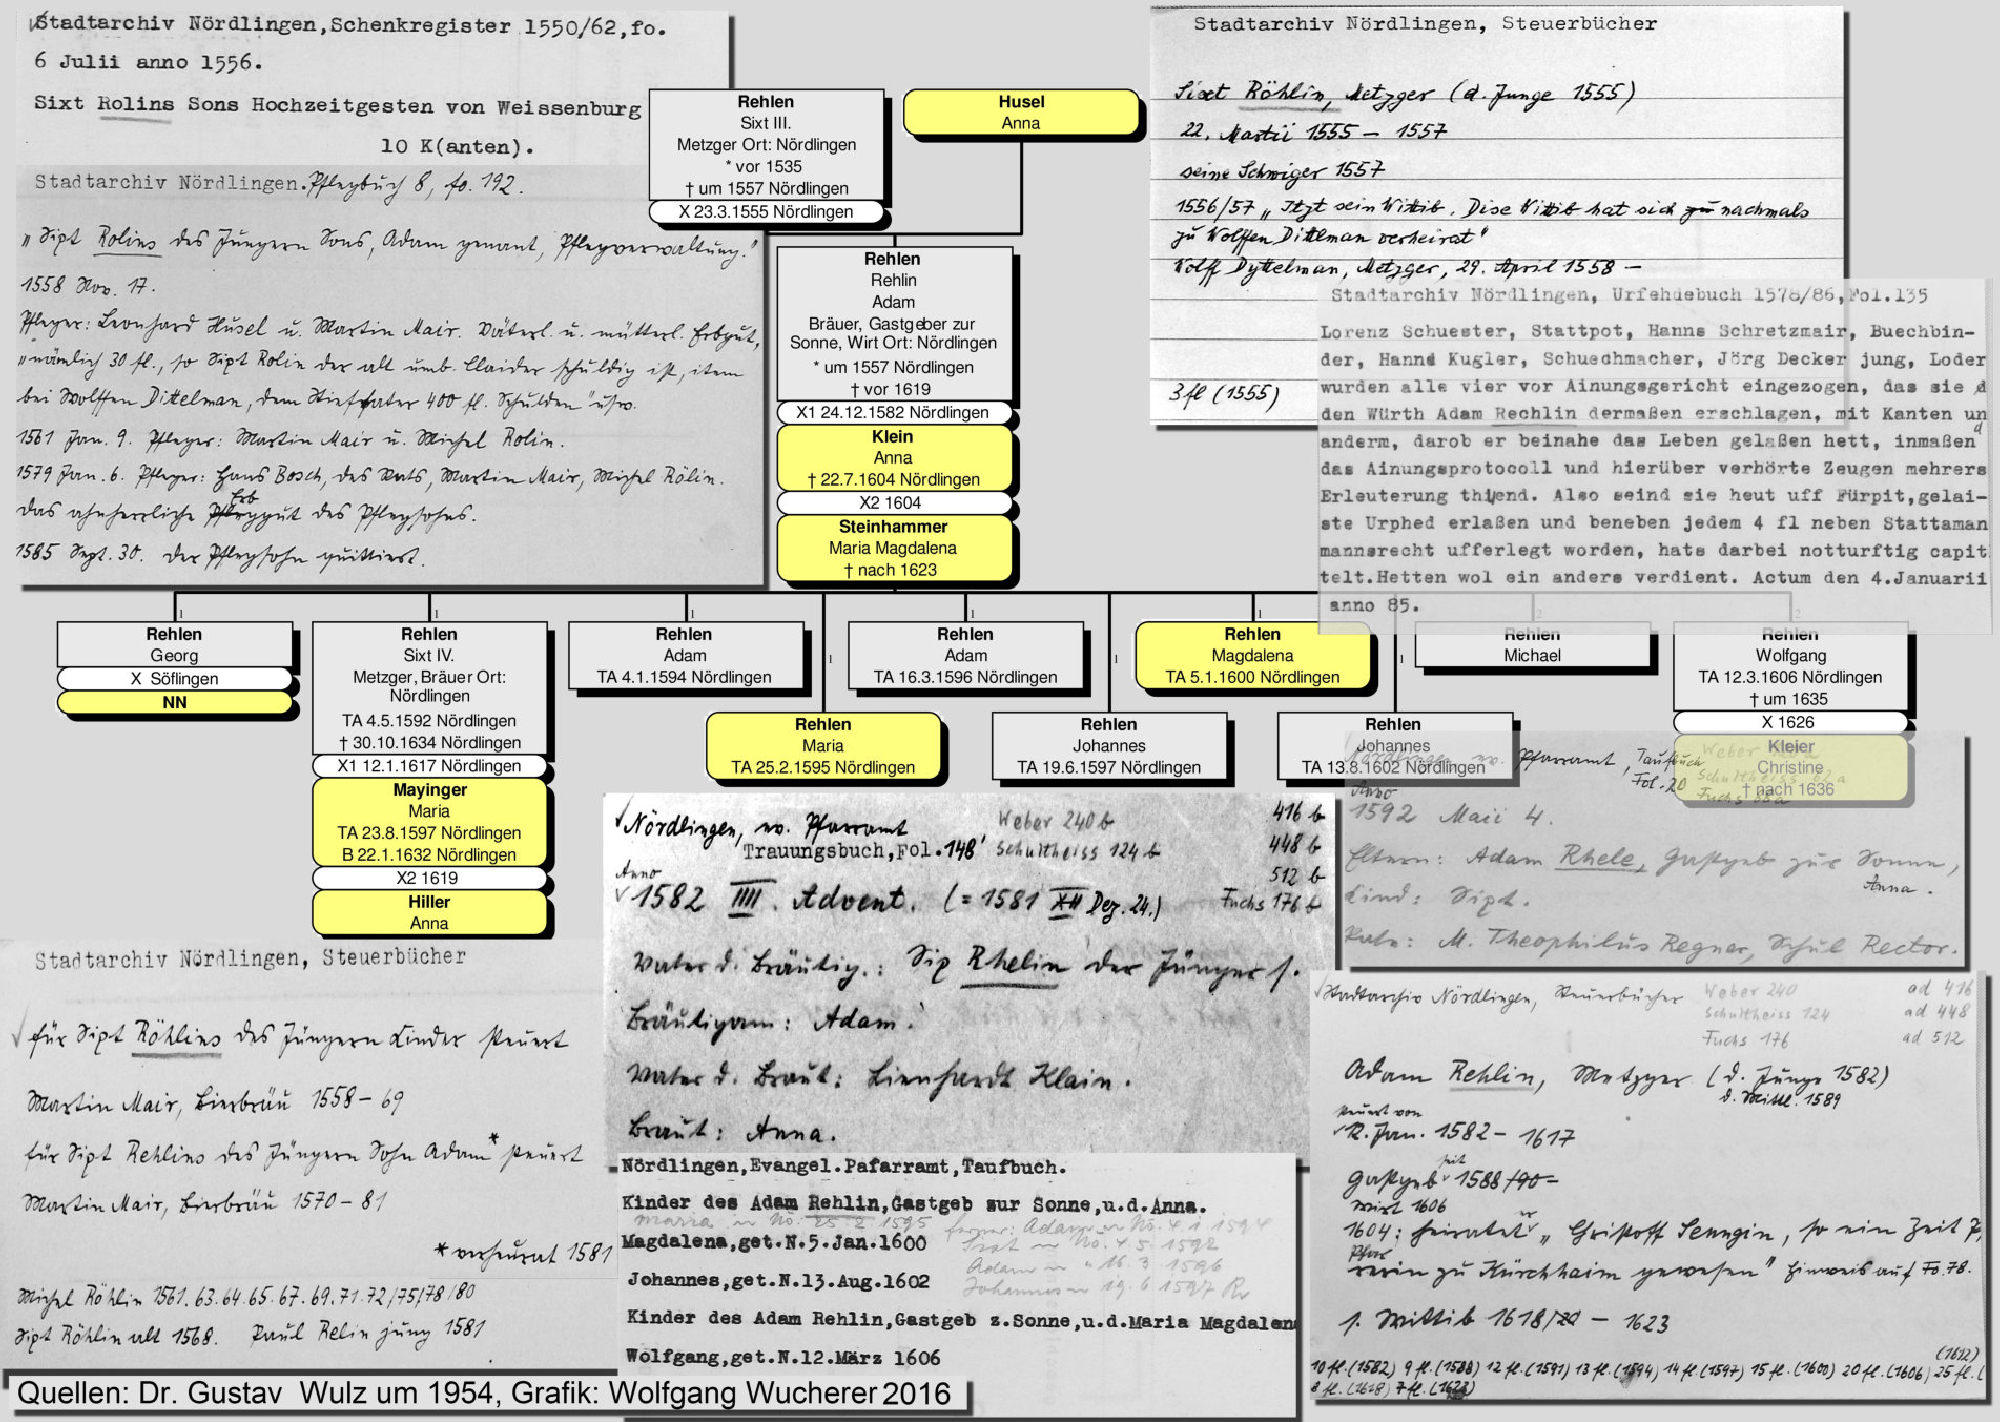 Stadtarchiv Nördlingen,Schenkregister 1550/62,fo.
6 Julii anno 1556.
Sixt Rolins Sons Hochzeitgesten von Weissenburg
10 K(anten).
Stadtarchiv Nördlingen. Pflegbuch 8, fo. 192.
„Sixt Rolins des Jüngern Sons, Adam genant, Pflegverwaltung."
1558 Nov. 17.
Pfleger: Leonhard Husel u. Martin Mair. Väterl. u. mütterl. Erbgut,
„nämlich 30 fl., so Sixt Rolin der alt umb Claider schuldig ist, item
bei Wolffen Dittelman, dem Stieffater 400 fl. Schulden" usw.
1561 Jan. 9. Pfleger: Martin Mair u. Michel Rolin.
1579 Jan. 6. Pfleger: Hans Bosch, des Rats, Martin Mair, Michel Rölin.
Erb
das ahnherrliche Pfleggut des Pflegsohns.
1585 Sept. 30. der Pflegsohn quittiert.
Rehlen
Sixt III.
Metzger Ort: Nördlingen
* vor 1535
† um 1557 Nördlingen
X 23.3.1555 Nördlingen
Husel
Anna
Stadtarchiv Nördlingen, Steuerbücher
Sixt Röhlin, Metzger (d. Junge 1555)
22. Martii 1555 – 1557
seine Schwiger 1557
1556/57 „Itzt sein Wittib. Dise Wittib hat sich zu nachmals
zu Wolffen Dittelman verheirat"
Wolff Dyttelman, Metzger, 29. April 1558 –
3 fl (1555)
Stadtarchiv Nördlingen, Urfehdebuch 1578/86,Fol.135
Lorenz Schuester, Stattpot, Hanns Schretzmair, Buechbin-
der, Hanns Kugler, Schuechmacher, Jörg Decker jung, Loder
wurden alle vier vor Ainungsgericht eingezogen, das sie d
den Würth Adam Rechlin dermaßen erschlagen, mit Kanten un
d
anderm, darob er beinahe das Leben gelaßen hett, inmaßen
das Ainungsprotocoll und hierüber verhörte Zeugen mehrers
Erleuterung thuend. Also seind sie heut uff Fürpit,gelai-
ste Urphed erlaßen und beneben jedem 4 fl neben Stattaman
mannsrecht ufferlegt worden, hats darbei notturftig capit
telt.Hetten wol ein anders verdient. Actum den 4.Januarii
anno 85.
Rehlen
Rehlin
Adam
Bräuer, Gastgeber zur
Sonne, Wirt Ort: Nördlingen
* um 1557 Nördlingen
† vor 1619
X1 24.12.1582 Nördlingen
Klein
Anna
† 22.7.1604 Nördlingen
X2 1604
Steinhammer
Maria Magdalena
† nach 1623
1 1 1 1 1 2 2
Rehlen
Georg
X Söflingen
NN
Rehlen
Sixt IV.
Metzger, Bräuer Ort:
Nördlingen
TA 4.5.1592 Nördlingen
† 30.10.1634 Nördlingen
X1 12.1.1617 Nördlingen
Mayinger
Maria
TA 23.8.1597 Nördlingen
B 22.1.1632 Nördlingen
X2 1619
Hiller
Anna
Rehlen
Adam
TA 4.1.1594 Nördlingen
1
Rehlen
Maria
TA 25.2.1595 Nördlingen
Rehlen
Adam
TA 16.3.1596 Nördlingen
1
Rehlen
Johannes
TA 19.6.1597 Nördlingen
Rehlen
Magdalena
TA 5.1.1600 Nördlingen
1
Rehlen
Johannes
TA 13.8.1602 Nördlingen
Rehlen
Michael
Rehlen
Wolfgang
TA 12.3.1606 Nördlingen
† um 1635
X 1626
Kleier
Christine
† nach 1636
Nördlingen, ev. Pfarramt, Taufbuch
Fol. 20
Weber
Schultheiss 62a
Fuchs 88a
Anno
1592 Maii 4.
Eltern: Adam Rhele, Gastgeb zur Sonne,
Anna.
Kind: Sixt.
Pate: M. Theophilus Regner, Schul Rector.
Nördlingen, ev. Pfarramt
Trauungsbuch,Fol.148'
Weber 240 b
Schultheiss 124 b
416 b
448 b
512 b
Fuchs 176 b
Anno
1582 IIII. Advent. (= 1581 XII Dez. 24.)
Vater d. Bräutig.: Six Rhelin der Jünger s.
Bräutigam: Adam.
Vater d. Braut: Lienhardt Klain.
Braut: Anna.
Stadtarchiv Nördlingen, Steuerbücher
für Sixt Röhlins des Jüngern Kinder steuert
Martin Mair, Bierbräu 1558 – 69
für Sixt Rehlins des Jüngern Sohn Adam* steuert
Martin Mair, Bierbräu 1570 – 81
* verheurat 1581
Michel Röhlin 1561.63.64.65.67.69.71.72/75/78/80
Sixt Röhlin alt 1568. Paul Relin jung 1581
Nördlingen,Evangel.Pafarramt,Taufbuch.
Kinder des Adam Rehlin,Gastgeb zur Sonne,u.d.Anna.
Maria ~ Nö. 25 2 1595 ferner: Adam ~ Nö. 4 1 1594
Magdalena,get.N.5.Jan.1600
Sixt ~ Nö. 4 5 1592
Adam ~ " 16. 3 1596
Johannes,get.N.13.Aug.1602
Johannes ~ 19. 6 1597
Kinder des Adam Rehlin,Gastgeb z.Sonne,u.d.Maria Magdalen
Wolfgang,get.N.12.März 1606
Stadtarchiv Nördlingen, Steuerbücher
Weber 240
Schultheiss 124
Fuchs 176
ad 416
ad 448
ad 512
Adam Rehlin, Metzger (d. Junge 1582)
d. Mittl. 1589
steuert von
12. Jan. 1582 – 1617
seit
Gastgeb 1588/90 –
Wirt 1606
1604: heiratet er „Christoff so ein Zeit
Pfar
rerin zu Kürchhaim gewesen" Hinweis auf Fo. 78.
s. Wittib 1618/20 – 1623
(1612)
10 fl.(1582) 9 fl.(1588) 12 fl.(1591) 13 fl.(1594) 14 fl.(1597) 15 fl.(1600) 20 fl.(1606) 25 fl.
8 fl.(1618) 7 fl.
Quellen: Dr. Gustav Wulz um 1954, Grafik: Wolfgang Wucherer 2016